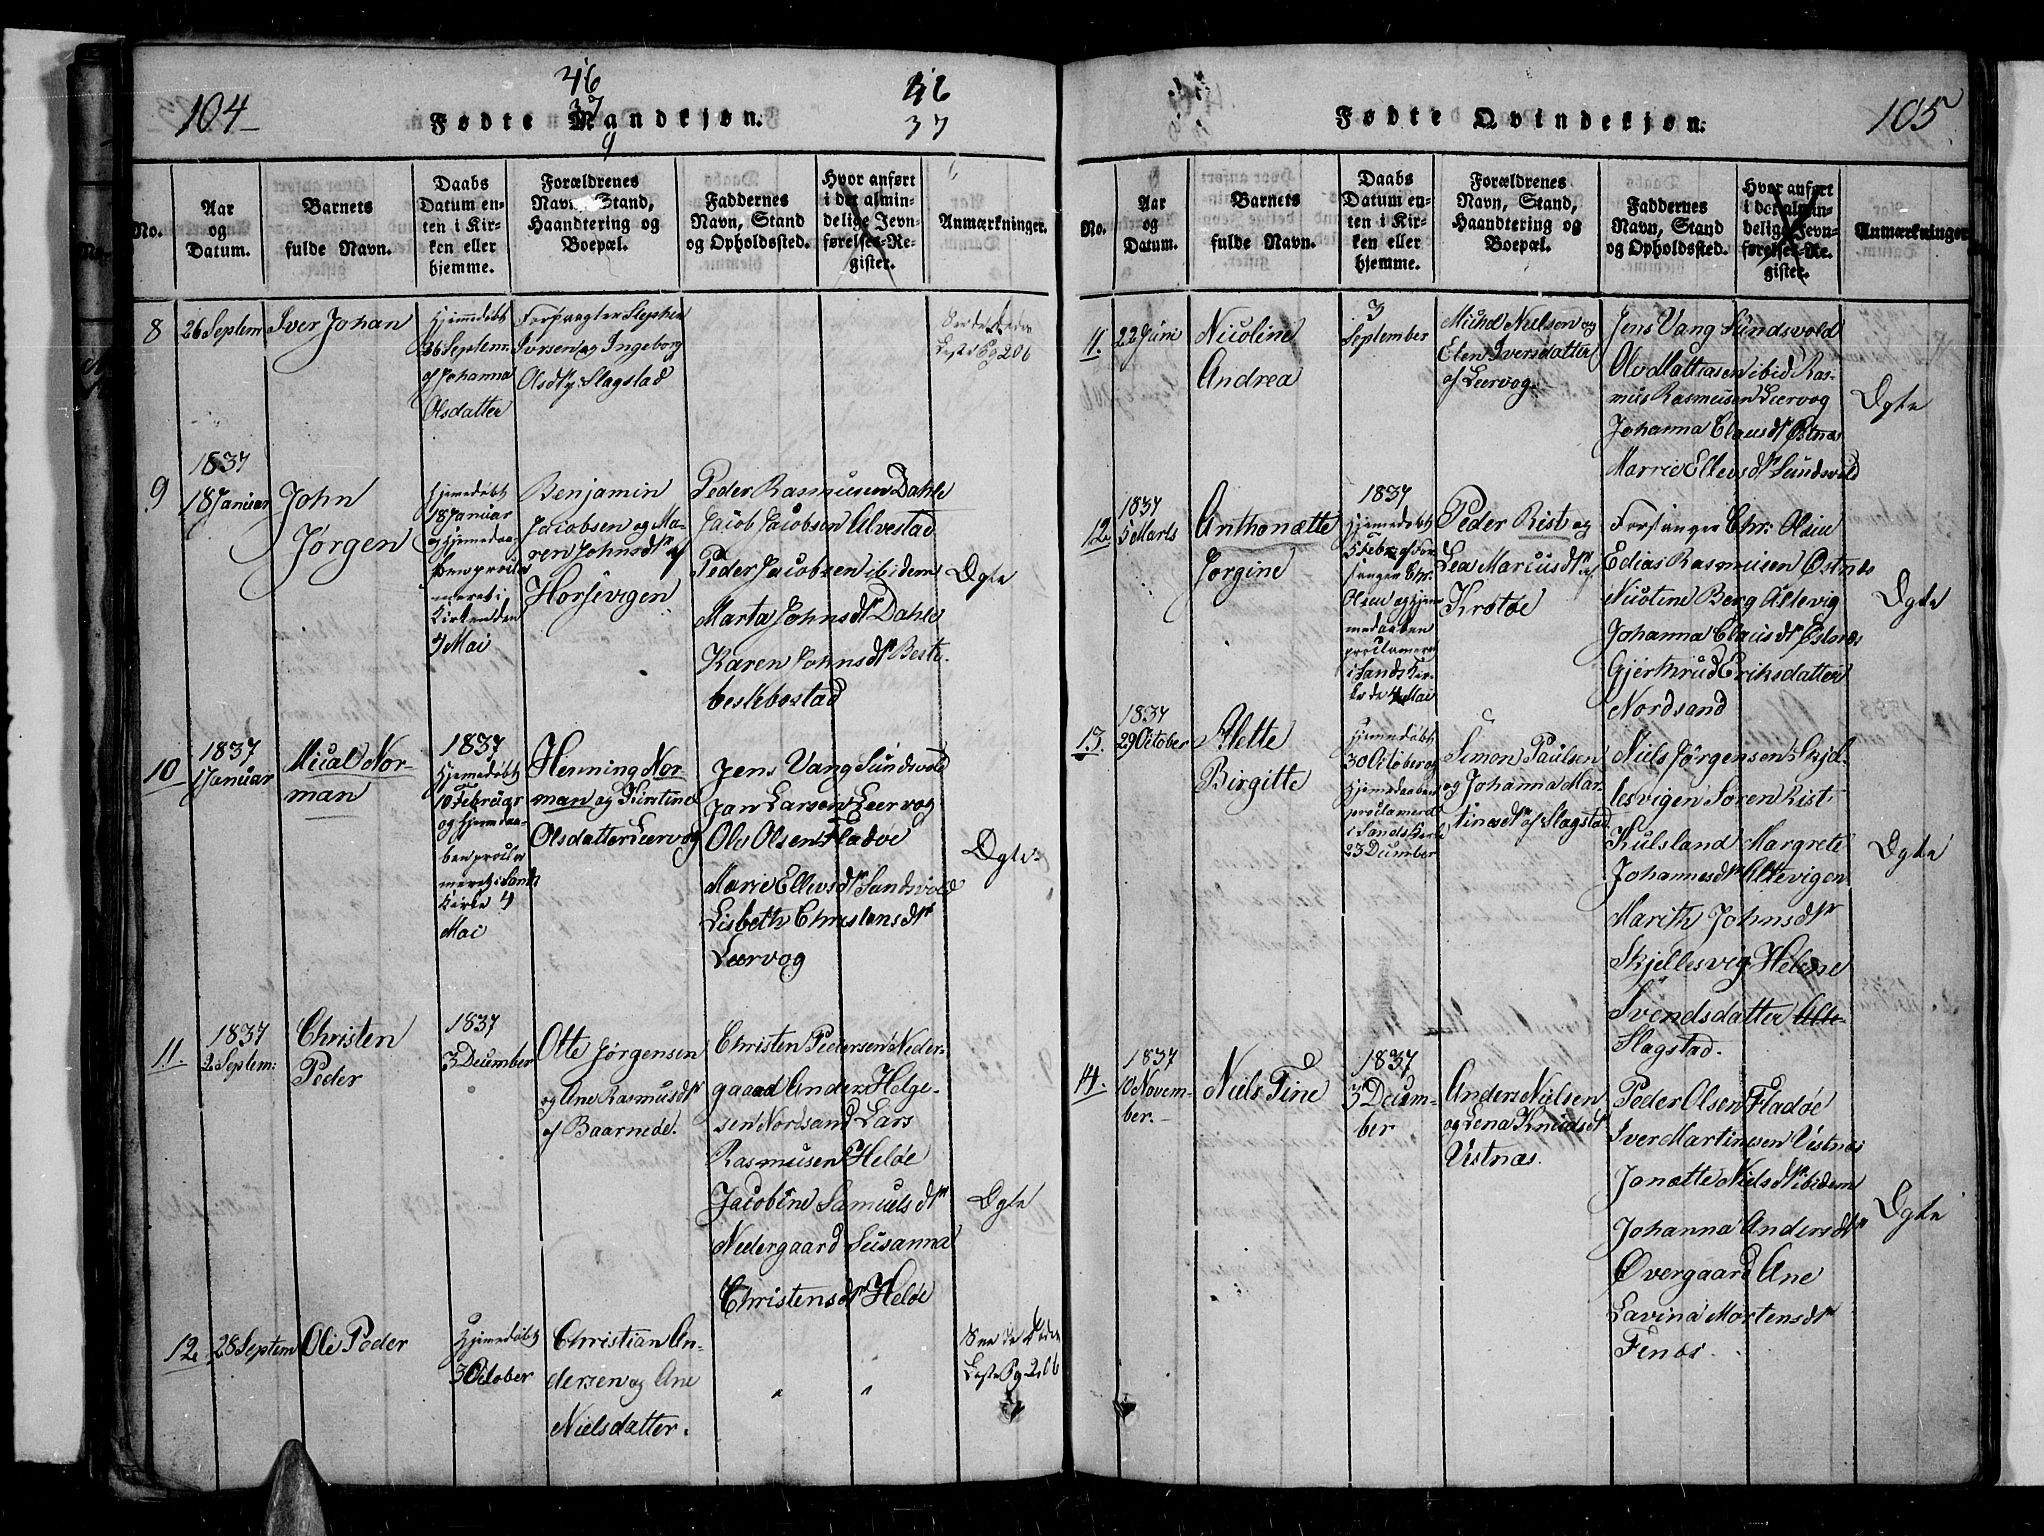 104
46
37
9
46
37
Fødte Mandkjøn.
No.
Aar
og
Datum.
Barnets
fulde Navn.
Daabs
Datum en-
ten i Kir-
ken eller
hjemme.
Forældrenes
Navn, Stand,
Haandtering og
Boepæl.
Faddernes
Navn, Stand
og Opholdssted.
Hvor anført
i det almin-
delige Jevn-
førelses-Re-
gister.
Anmærkninger.
8
26 Septem
Iver Johan
Hjemmedøbt
26 Septem:
af Johanna
Olsdatter
Forpagter Stephen
Iversen og Ingeborg
Olsdtr: Slagstad
See døde
Liste Pg 206
9
1837
18 Januar
John
Jørgen
Hjemmedøbt
18 Januar
og hjemedaa-
ben procla
meret i
Kirken den
4 Mai
Benjamin
Jacobsen og Ma-
ren Johnsdtr af
Horsevigen
Peder Rasmusen Dahle
Jacob Jacobsen Alvestad
Peder Jacobsen ibidem
Marta Johnsdtr Dahle
Karen Johnsdtr Beste-
beslebostad
Ægte
10
1837
1 Januar
Mical Nor-
man
1837
Hjemedøbt
10 Februar
og hjemedaa-
ben procla
meret i Sands
Kirke 4
Mai
Henning Nor-
man og Kirstine
Olsdatter Leervog
Jens Vang Sundsvold
Jan Larsen Leervog
Ols Olsen Fladøe
Marie Ellevsdtr Sandsvold
Lisbeth Christensdtr
Leervog
Ægte
11.
1837
2 Septem:
Christen
Peder
1837
3 December
Otte Jørgensen
og Ane Rasmusdtr
af Baarnede.
Christen Pedersen Neder-
gaard Anders Helge-
sen Nordsand Lars
Rasmusen Heløe
Jacobine Samuelsdtr
Nedergaard Susanna
Christensdtr Heløe
Ægte
12
28 Septem
Ole Peder
Hjemedøbt
3 October
Christian An-
dersen og Ane
Nielsdatter.
" "
See de Døde
Liste Pg 206
105
Fødte Qvindekjøn.
No.
Aar
og
Datum.
Barnets
fulde Navn.
Daabs
Datum en-
ten i Kir-
ken eller
hjemme.
Forældrenes
Navn, Stand,
Haandtering og
Boepæl.
Faddernes
Navn, Stand
og Opholdssted.
Hvor anført
i det almin-
delige Jevn-
førelses-Re-
gister.
Anmærkninger
11.
22 Juni
Nicoline
Andrea
3
September
Michel Nielsen og
Elen Iversdatter
af Leervog.
Jens Vang Sundsvold
Ols Mathiasen ibid Ras-
mus Rasmusen Leervog
Johanna Clausdtr Østnæs
Marrie Ellevsdtr Sundsvold
Ægte
12
1837
5 Marts
Anthonætte
Jorgine
1837
Hjemedøbt
Febr: af For-
sanger Chr.
Olsen og hjem-
medaaben
proclameret
i Sands Kir-
ke de 4 Mai
Peder Rist og
Lea Marcusdtr af
Krøtøe
Forsanger Chr: Olsen
Edias Rasmusen Østnæs
Nicoline Berg Altevig
Johanna Clausdtr Østnæs
Gjerthrud Eriksdatter
Nordsand
Ægte
13.
1837
29 October
Mette
Birgitte
Hjemedøbt
30 October og
Hjemedaaben
proclameret
i Sands Kirke
23 December
Simon Paulsen
og Johanna Mar-
tinsdtr af Slagstad
Niels Jørgensen Skjel-
lesvigen Søren Rist
Kulsland Margrete
Johannesdtr Altevigen
Marith Johnsdtr
Skjellesvig Helene
Svendsdatter Alte-
Slagstad.
Ægte
14.
1837
10 Novem-
ber.
Niels Tine
1837
3 Decem-
ber
Anders Nielsen
og Lena Knudsdtr
Vestnæs.
Peder Olsen Fladøe
Iver Martinsen Vestnæs
Jonætte Nielsdtr ibidem
Johanna Andersdtr
Overgaard Ane
Lavina Mortensdtr
Finøi.
Ægte